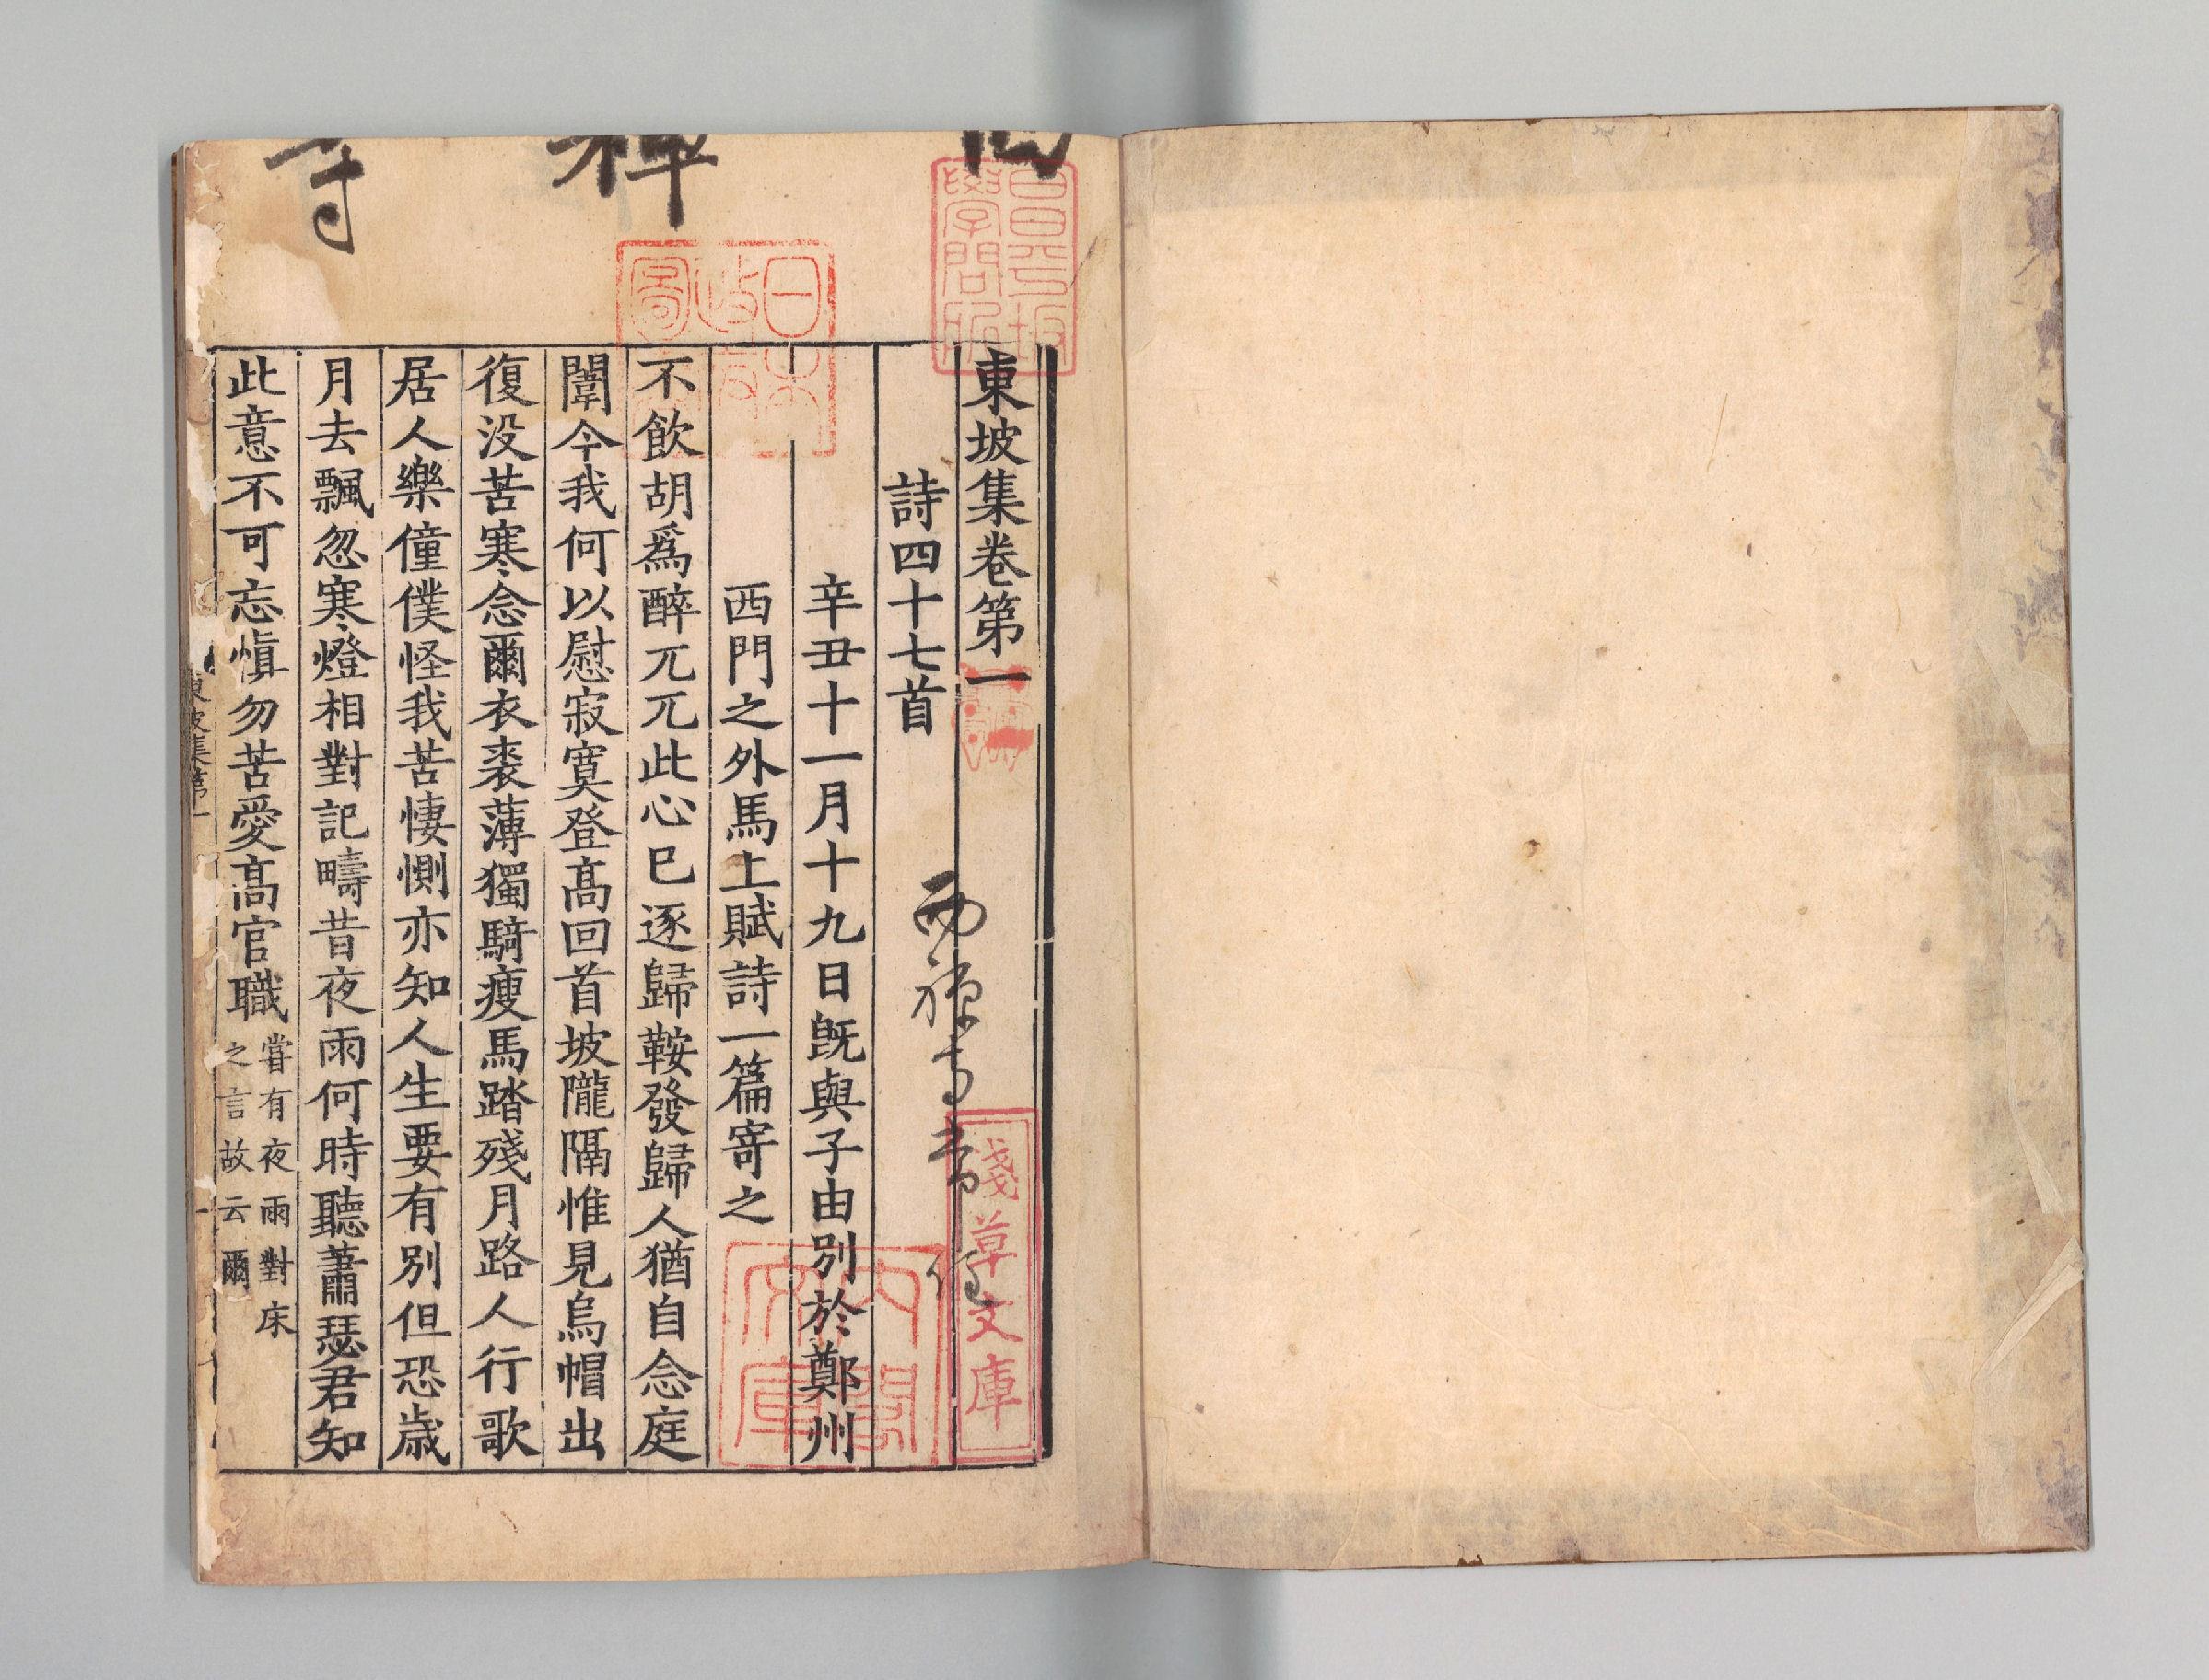 東坡集卷第一
詩四十七首
西禅寺常住
辛丑十一月十九日旣與子由別於鄭州
西門之外馬上賦詩一篇寄之
不飲胡爲醉兀兀此心已逐歸鞍發歸人猶自念庭
闈今我何以慰寂寞登高回首坡隴隔惟見烏帽出
復没苦寒念爾衣裘薄獨騎瘦馬踏殘月路人行歌
居人樂僮僕怪我苦悽惻亦知人生要有別但恐歳
月去飄忽寒燈相對記疇昔夜雨何時聽蕭瑟君知
此意不可忘愼勿苦愛高官職
甞有夜雨對床
之言故云爾
東坡集第一
一
禅寺
昌平坂學問所
淺草文庫
内閣文庫